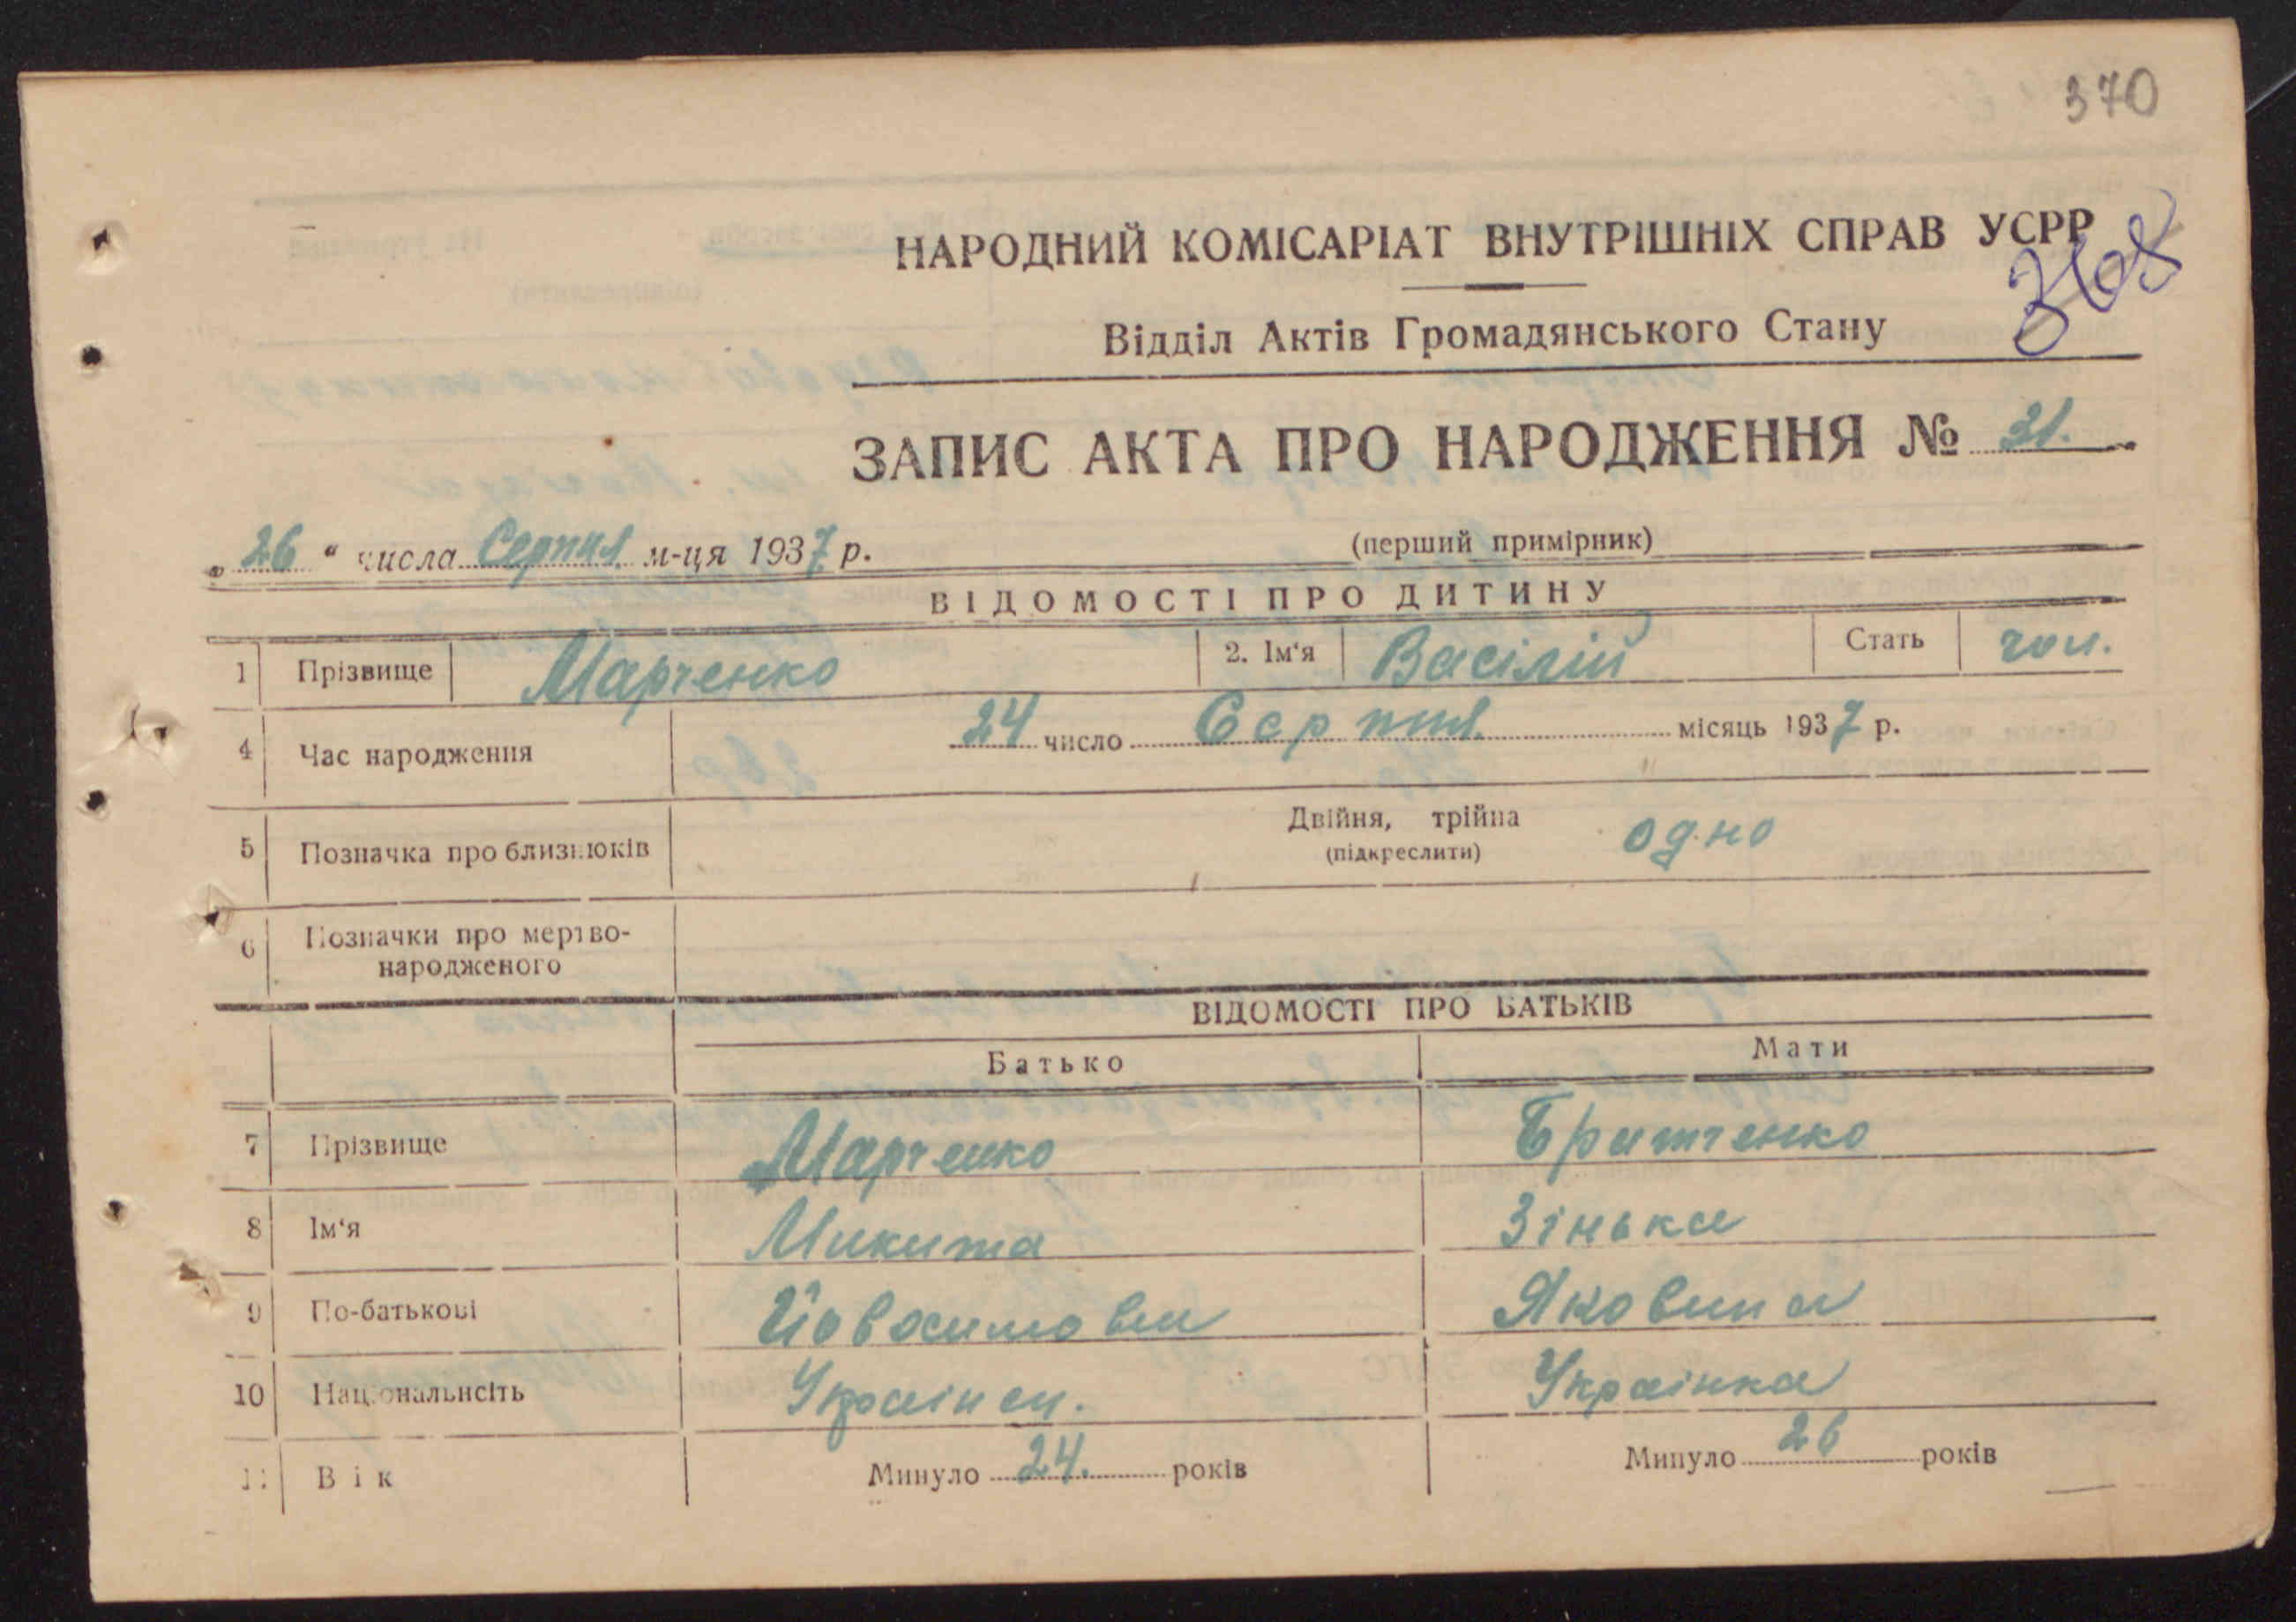 370
НАРОДНИЙ КОМІСАРІАТ ВНУТРІШНІХ СПРАВ УСРР
368
Відділ Актів Громадянського Стану
ЗАПИС АКТА ПРО НАРОДЖЕННЯ № 31.
„26“ числа Серпня м-ця 1937 р. (перший примірник)
ВІДОМОСТІ ПРО ДИТИНУ
1 Прізвище Марченко 2. Ім'я Васілій Стать чол.
4 Час народження 24 число Серпня місяць 1937 р.
5 Позначка про близнюків Двійня, трійна одно
(підкреслити)
6 Позначки про мертво-
народженого
ВІДОМОСТІ ПРО БАТЬКІВ
Батько Мати
7 Прізвище Марченко Притченко
8 Ім'я Микита Зінька
9 По-батькові Яковина
10 Національнсіть Українец. Українка
11 Вік Минуло 24. років Минуло 26 років